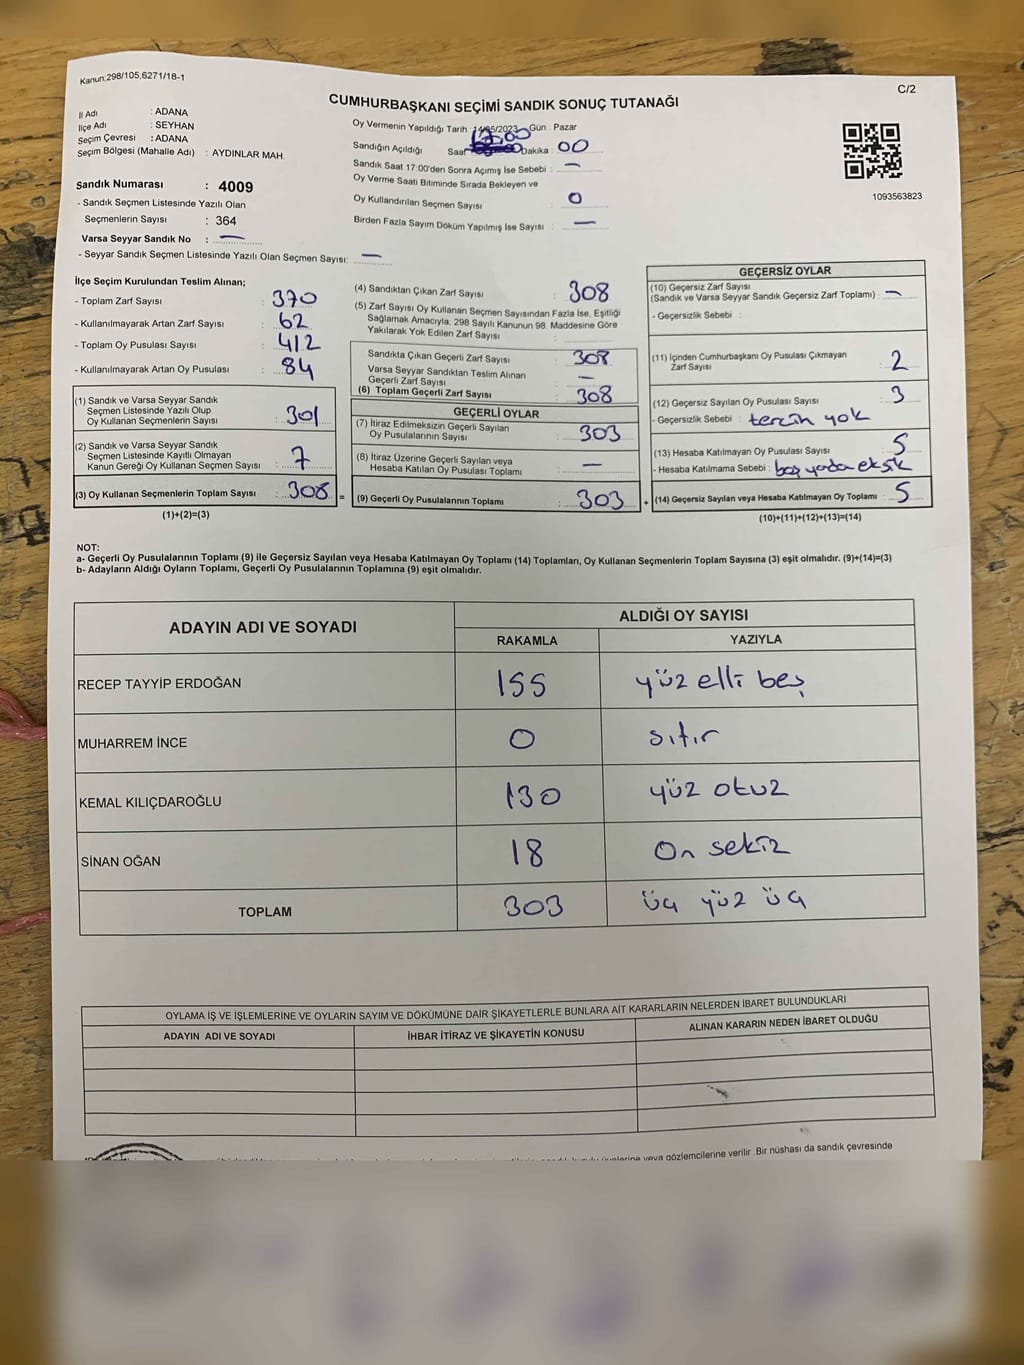 Kanun;298/105,6271/18-1
C/2
CUMHURBAŞKANI SEÇİMİ SANDIK SONUÇ TUTANAĞI
İl Adı : ADANA
İlçe Adı : SEYHAN
Seçim Çevresi : ADANA
Seçim Bölgesi (Mahalle Adı) : AYDINLAR MAH.
Sandık Numarası : 4009
- Sandık Seçmen Listesinde Yazılı Olan
Seçmenlerin Sayısı : 364
Varsa Seyyar Sandık No : —
- Seyyar Sandık Seçmen Listesinde Yazılı Olan Seçmen Sayısı: —
Oy Vermenin Yapıldığı Tarih : 14/05/2023 Gün : Pazar
Sandığın Açıldığı Saat 17:00 Dakika : 00
Sandık Saat 17:00'den Sonra Açımış İse Sebebi : —
Oy Verme Saati Bitiminde Sırada Bekleyen ve
Oy Kullandırılan Seçmen Sayısı : 0
Birden Fazla Sayım Döküm Yapılmış İse Sayısı : —
1093563823
İlçe Seçim Kurulundan Teslim Alınan;
- Toplam Zarf Sayısı : 370
- Kullanılmayarak Artan Zarf Sayısı : 62
- Toplam Oy Pusulası Sayısı : 412
- Kullanılmayarak Artan Oy Pusulası : 84
(1) Sandık ve Varsa Seyyar Sandık
Seçmen Listesinde Yazılı Olup
Oy Kullanan Seçmenlerin Sayısı : 301
(2) Sandık ve Varsa Seyyar Sandık
Seçmen Listesinde Kayıtlı Olmayan
Kanun Gereği Oy Kullanan Seçmen Sayısı : 7
(3) Oy Kullanan Seçmenlerin Toplam Sayısı : 308 =
(1)+(2)=(3)
(4) Sandıktan Çıkan Zarf Sayısı : 308
(5) Zarf Sayısı Oy Kullanan Seçmen Sayısından Fazla İse, Eşitliği
Sağlamak Amacıyla, 298 Sayılı Kanunun 98. Maddesine Göre
Yakılarak Yok Edilen Zarf Sayısı :
Sandıkta Çıkan Geçerli Zarf Sayısı : 308
Varsa Seyyar Sandıktan Teslim Alınan
Geçerli Zarf Sayısı : —
(6) Toplam Geçerli Zarf Sayısı : 308
GEÇERLİ OYLAR
(7) İtiraz Edilmeksizin Geçerli Sayılan
Oy Pusulalarının Sayısı : 303
(8) İtiraz Üzerine Geçerli Sayılan veya
Hesaba Katılan Oy Pusulası Toplamı : —
(9) Geçerli Oy Pusulalarının Toplamı : 303 +
GEÇERSİZ OYLAR
(10) Geçersiz Zarf Sayısı
(Sandık ve Varsa Seyyar Sandık Geçersiz Zarf Toplamı) : —
- Geçersizlik Sebebi :
(11) İçinden Cumhurbaşkanı Oy Pusulası Çıkmayan
Zarf Sayısı : 2
(12) Geçersiz Sayılan Oy Pusulası Sayısı : 3
- Geçersizlik Sebebi : tercih yok
(13) Hesaba Katılmayan Oy Pusulası Sayısı : 5
- Hesaba Katılmama Sebebi : boş yada eksik
(14) Geçersiz Sayılan veya Hesaba Katılmayan Oy Toplamı : 5
(10)+(11)+(12)+(13)=(14)
NOT:
a- Geçerli Oy Pusulalarının Toplamı (9) ile Geçersiz Sayılan veya Hesaba Katılmayan Oy Toplamı (14) Toplamları, Oy Kullanan Seçmenlerin Toplam Sayısına (3) eşit olmalıdır. (9)+(14)=(3)
b- Adayların Aldığı Oyların Toplamı, Geçerli Oy Pusulalarının Toplamına (9) eşit olmalıdır.
ADAYIN ADI VE SOYADI
ALDIĞI OY SAYISI
RAKAMLA YAZIYLA
RECEP TAYYİP ERDOĞAN 155 yüz elli beş
MUHARREM İNCE 0 sıfır
KEMAL KILIÇDAROĞLU 130 yüz otuz
SİNAN OĞAN 18 On sekiz
TOPLAM 303 üç yüz üç
OYLAMA İŞ VE İŞLEMLERİNE VE OYLARIN SAYIM VE DÖKÜMÜNE DAİR ŞİKAYETLERLE BUNLARA AİT KARARLARIN NELERDEN İBARET BULUNDUKLARI
ADAYIN ADI VE SOYADI İHBAR İTİRAZ VE ŞİKAYETİN KONUSU ALINAN KARARIN NEDEN İBARET OLDUĞU
veya gözlemcilerine verilir. Bir nüshası da sandık çevresinde